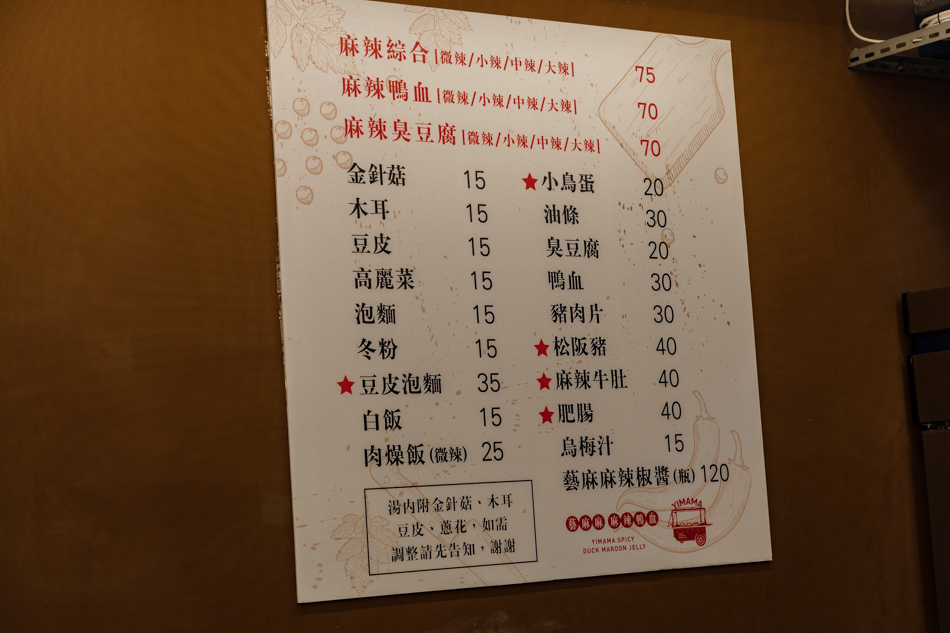 麻辣綜合|微辣/小辣/中辣/大辣| 75
麻辣鴨血|微辣/小辣/中辣/大辣| 70
麻辣臭豆腐|微辣/小辣/中辣/大辣| 70
金針菇 15
木耳 15
豆皮 15
高麗菜 15
泡麵 15
冬粉 15
★豆皮泡麵 35
白飯 15
肉燥飯(微辣) 25
★小鳥蛋 20
油條 30
臭豆腐 20
鴨血 30
豬肉片 30
★松阪豬 40
★麻辣牛肚 40
★肥腸 40
烏梅汁 15
藝麻麻辣椒醬(瓶) 120
湯內附金針菇、木耳
豆皮、蔥花，如需
調整請先告知，謝謝
藝麻麻 麻辣鴨血
YIMAMA SPICY
DUCK MAROON JELLY
YIMAMA